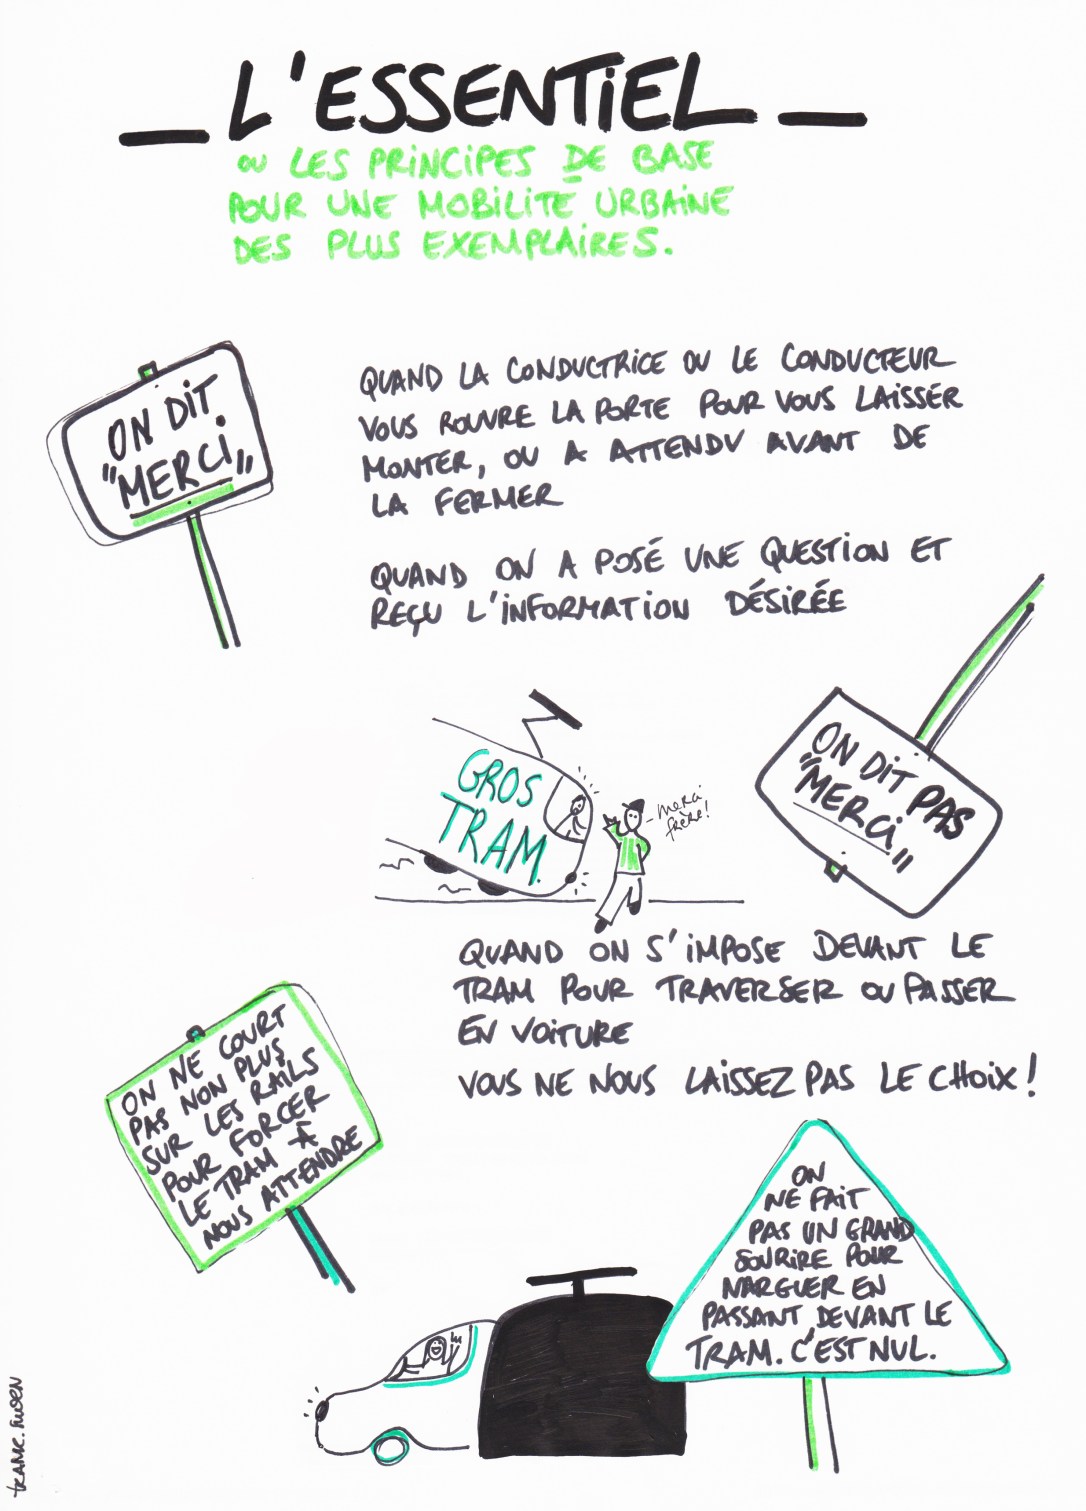 L'ESSENTIEL
OU LES PRINCIPES DE BASE
POUR UNE MOBILITÉ URBAINE
DES PLUS EXEMPLAIRES.
ON DIT
"MERCI"
QUAND LA CONDUCTRICE OU LE CONDUCTEUR
VOUS ROUVRE LA PORTE POUR VOUS LAISSER
MONTER, OU A ATTENDU AVANT DE
LA FERMER
QUAND ON A POSÉ UNE QUESTION ET
REÇU L'INFORMATION DÉSIRÉE
GROS
TRAM
merci
frère!
ON DIT PAS
"MERCI"
QUAND ON S'IMPOSE DEVANT LE
TRAM POUR TRAVERSER OU PASSER
EN VOITURE
VOUS NE NOUS LAISSEZ PAS LE CHOIX!
ON NE COURT
PAS NON PLUS
SUR LES RAILS
POUR FORCER
LE TRAM À
NOUS ATTENDRE
ON
NE FAIT
PAS UN GRAND
SOURIRE POUR
NARGUER EN
PASSANT DEVANT LE
TRAM. C'EST NUL.